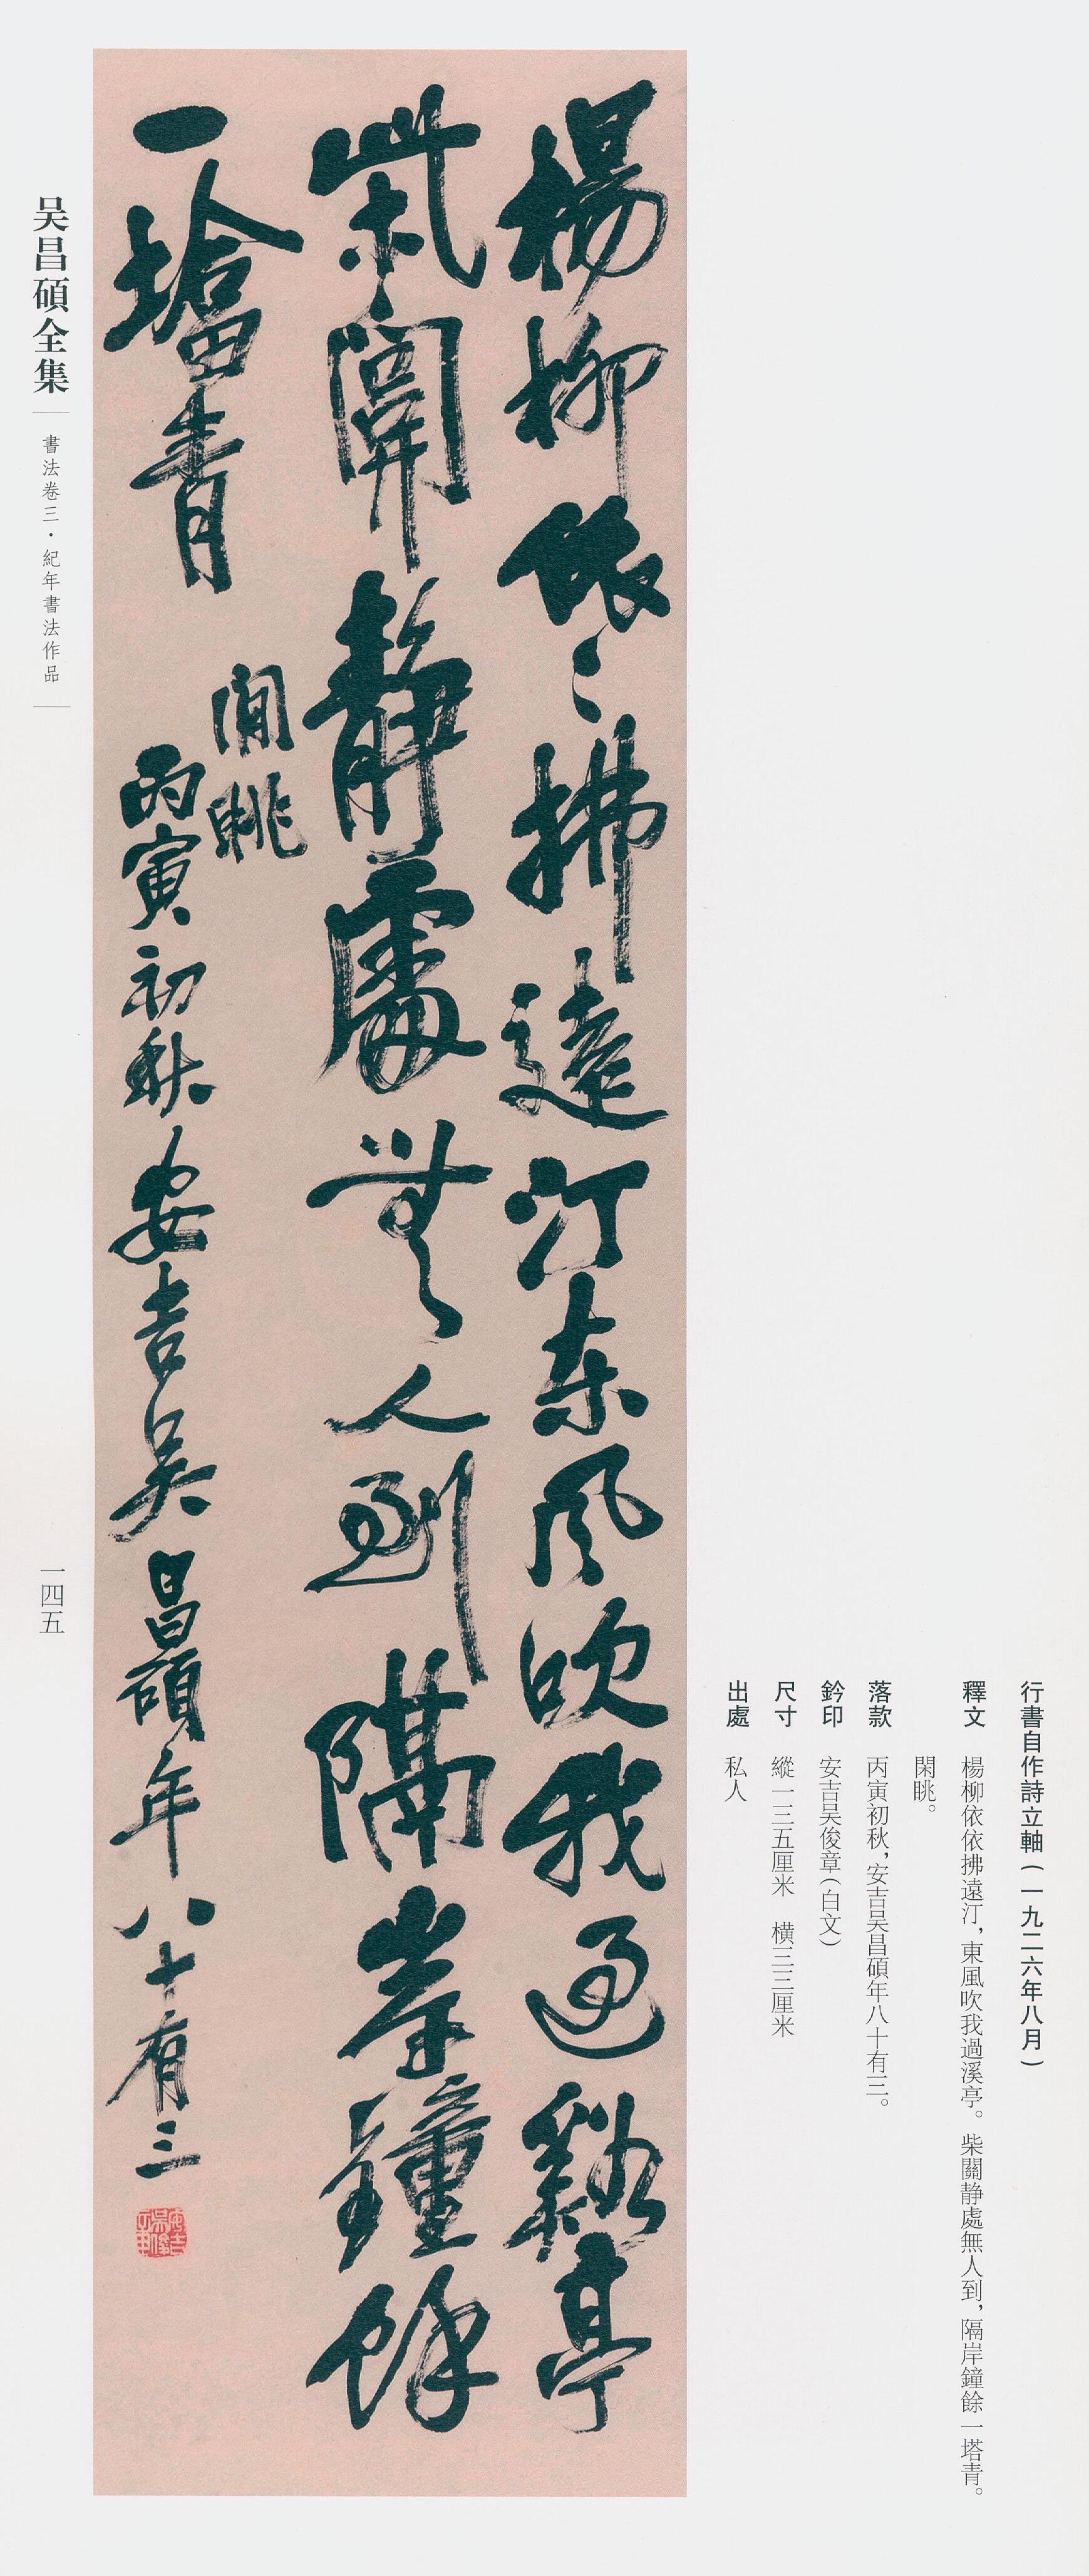 行書自作詩立軸(一九二六年八月)
釋文 楊柳依依拂遠汀，東風吹我過溪亭。柴關静處無人到，隔岸鐘餘一塔青。
閑眺。
落款 丙寅初秋，安吉吴昌碩年八十有三。
鈐印 安吉吴俊章(白文)
尺寸 縱一三五厘米 横三三厘米
出處 私人
楊柳依〻拂遠汀東風吹我過谿亭
柴關靜處無人到隔岸鐘餘
一塔青
閒眺
丙寅初秋安吉吴昌碩年八十有三
安吉吴俊章
吴昌碩全集
書法卷三·紀年書法作品
一四五